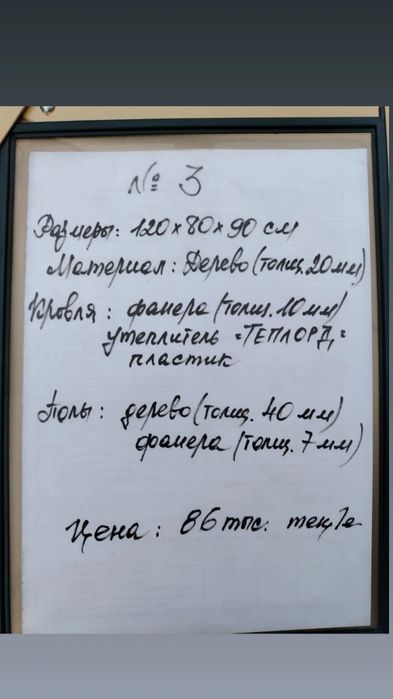 № 3
Размеры: 120х80х90 см
Материал: Дерево (толщ. 20мм)
Кровля: фанера (толщ. 10мм)
утеплитель "ТЕПЛОРД"
пластик
Полы: дерево (толщ. 40мм)
фанера (толщ. 7мм)
Цена: 86 тыс. тенге